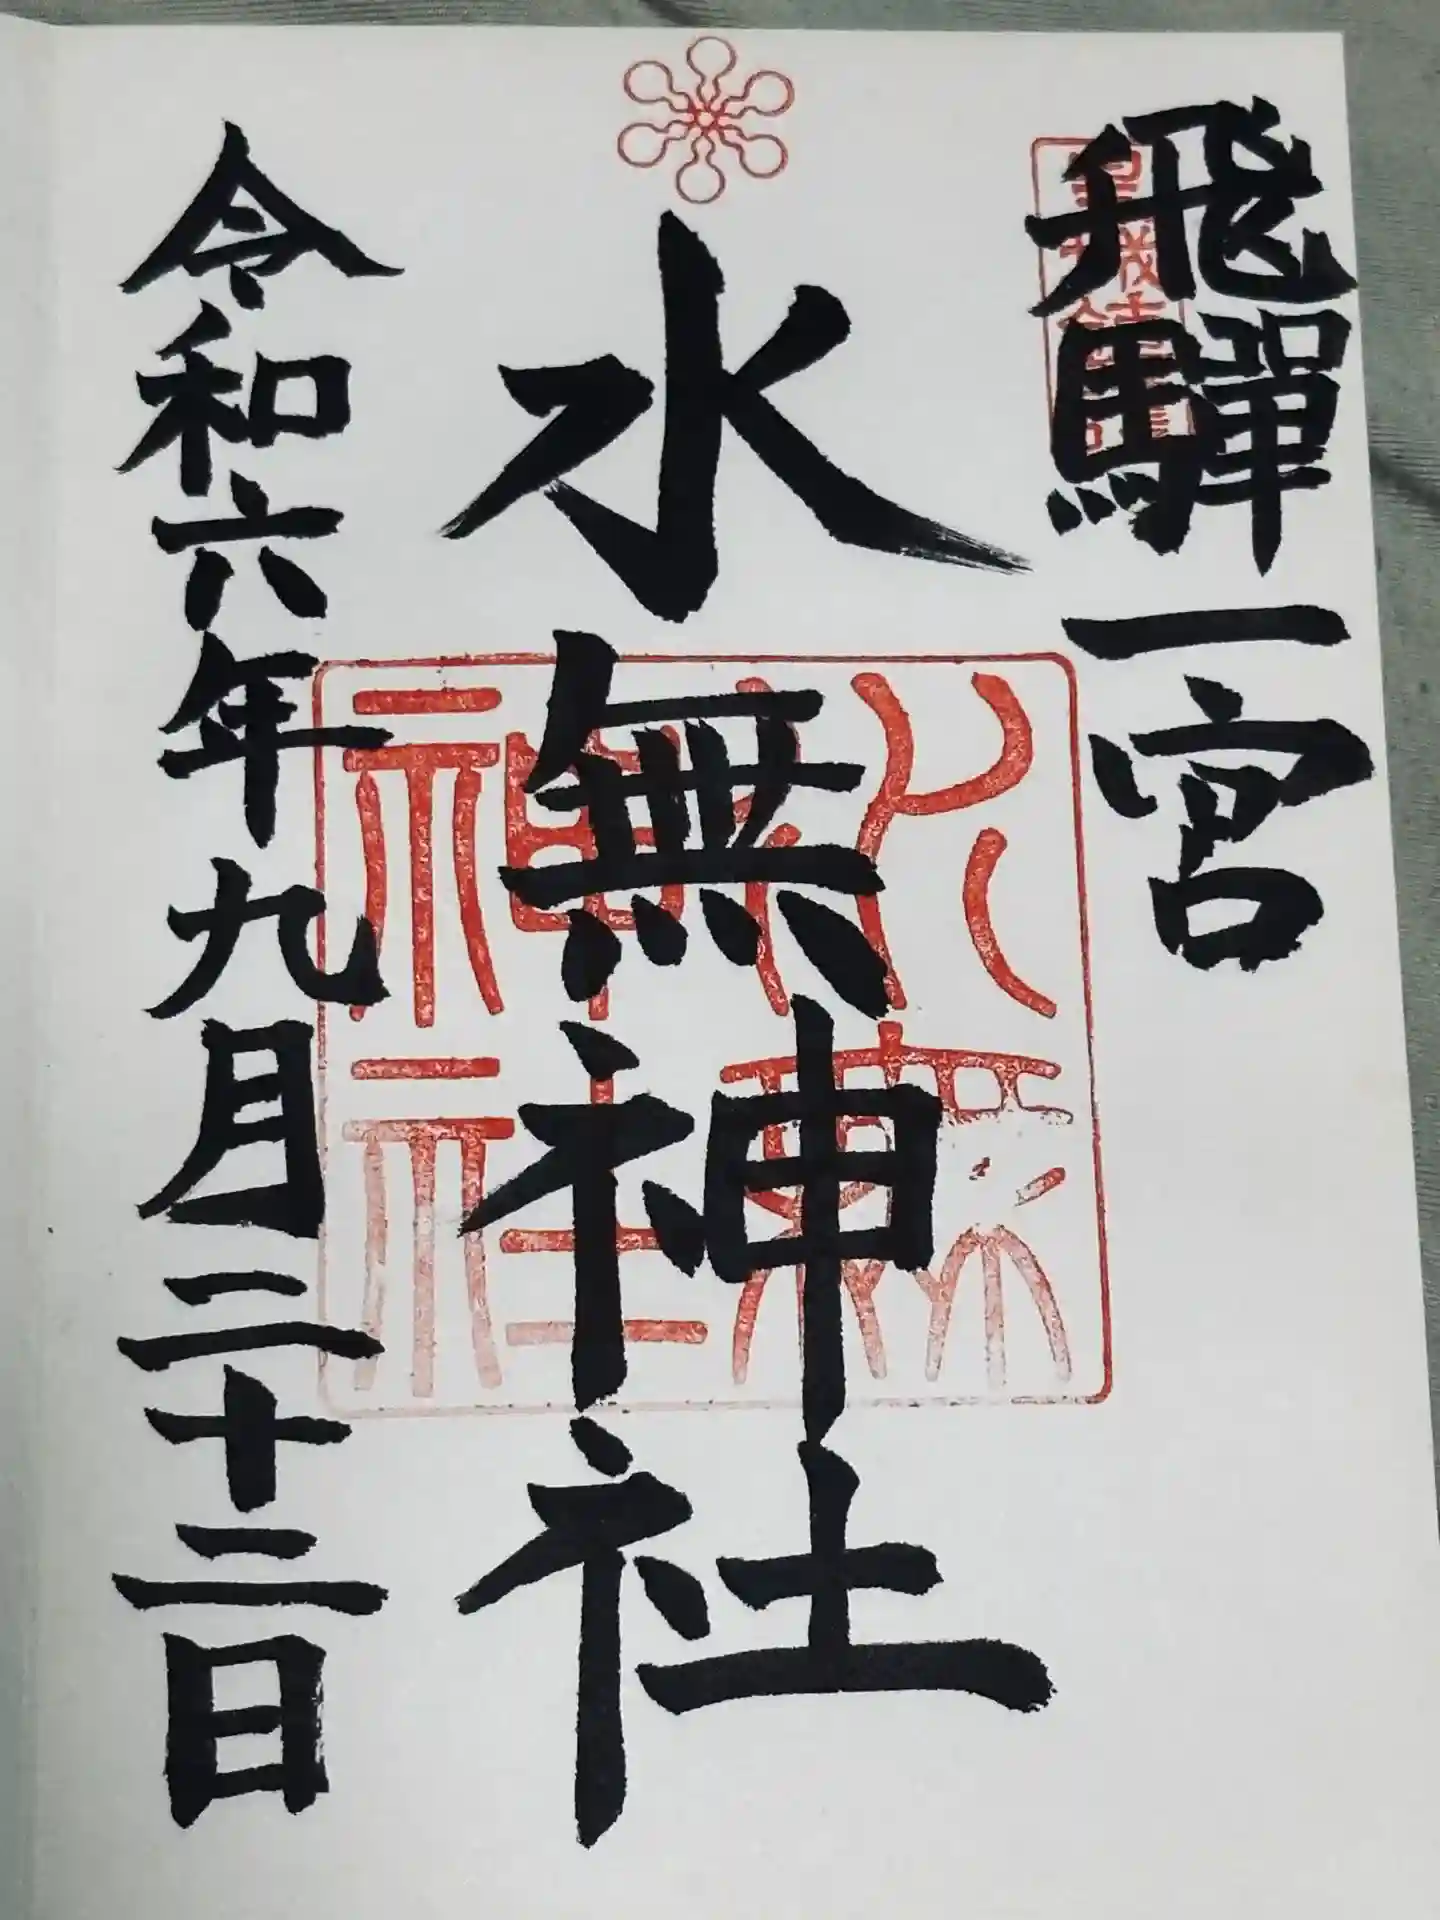 飛驒一宮
水無神社
令和六年九月二十二日
水無
神社